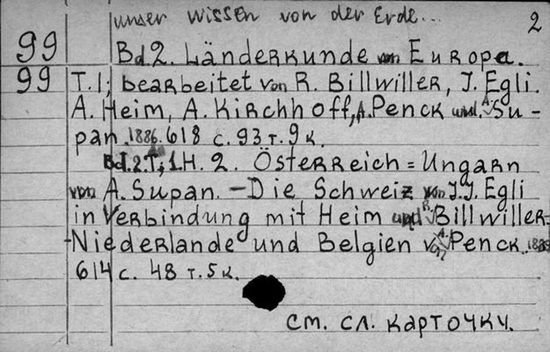 unser wissen von der Erde... 2
99 Bd 2. Länderkunde von Europa.
99 T.1; bearbeitet von R. Billwiller, J. Egli.
A. Heim, A. Kirchhoff, A. Penck und A. Su-
pan. 1886. 618 с. 93 т. 9 к.
Bd. 2. T; 1 H. 2. Österreich = Ungarn
von A. Supan. - Die Schweiz von J.J. Egli
in Verbindung mit Heim und R. Billwiller-
-Niederlande und Belgien von A. Penck.
614 с. 48 т. 5 к.
См. сл. карточку.